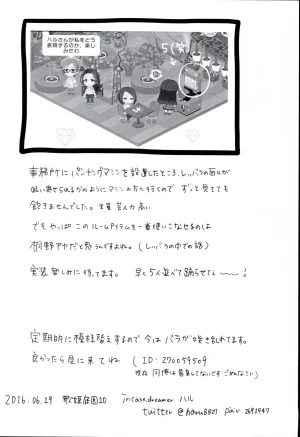 ハルさんが私をどう
表現するのか、楽し
みだわ
5(笑)
事務所に パンチングマシンを設置したところ、レッバラの面々が
吸い寄せられるかのようにマシンの方へ行くので ずっと見てても
飽きませんでした。全員 芸人力高い
でも やっぱ このルームアイテムを一番使いこなせるのは
桐野アヤだと思うんですよね。(レッバラの中での話)
実装 楽しみに待てます。 早く5人並べて踊らせてぇ〜〜〜!
定期的に模様替えするので今は バラが咲き乱れてます。
良かったら 見に来てね (ID:270059509
2016.06.19 歌姫庭園10 in case.dreamer ハル
twitter @haru8827 pixiv 2692947